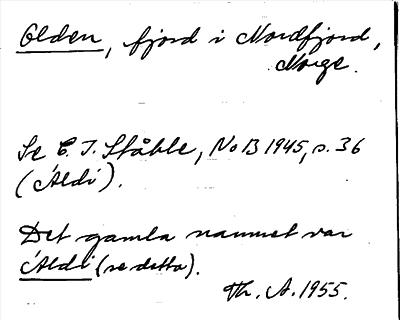 Olden, fjord i Nordfjord,
Norge.
Se C. I. Ståhle, NoB 1945, s. 36
(Áldi).
Det gamla namnet var
Áldi (se detta).
Th. A. 1955.